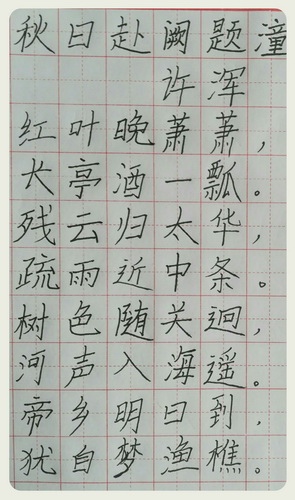 秋日赴阙题潼
许浑
红叶晚萧萧，
长亭酒一瓢。
残云归太华，
疏雨近中条。
树色随关迥，
河声入海遥。
帝乡明日到，
犹自梦渔樵。